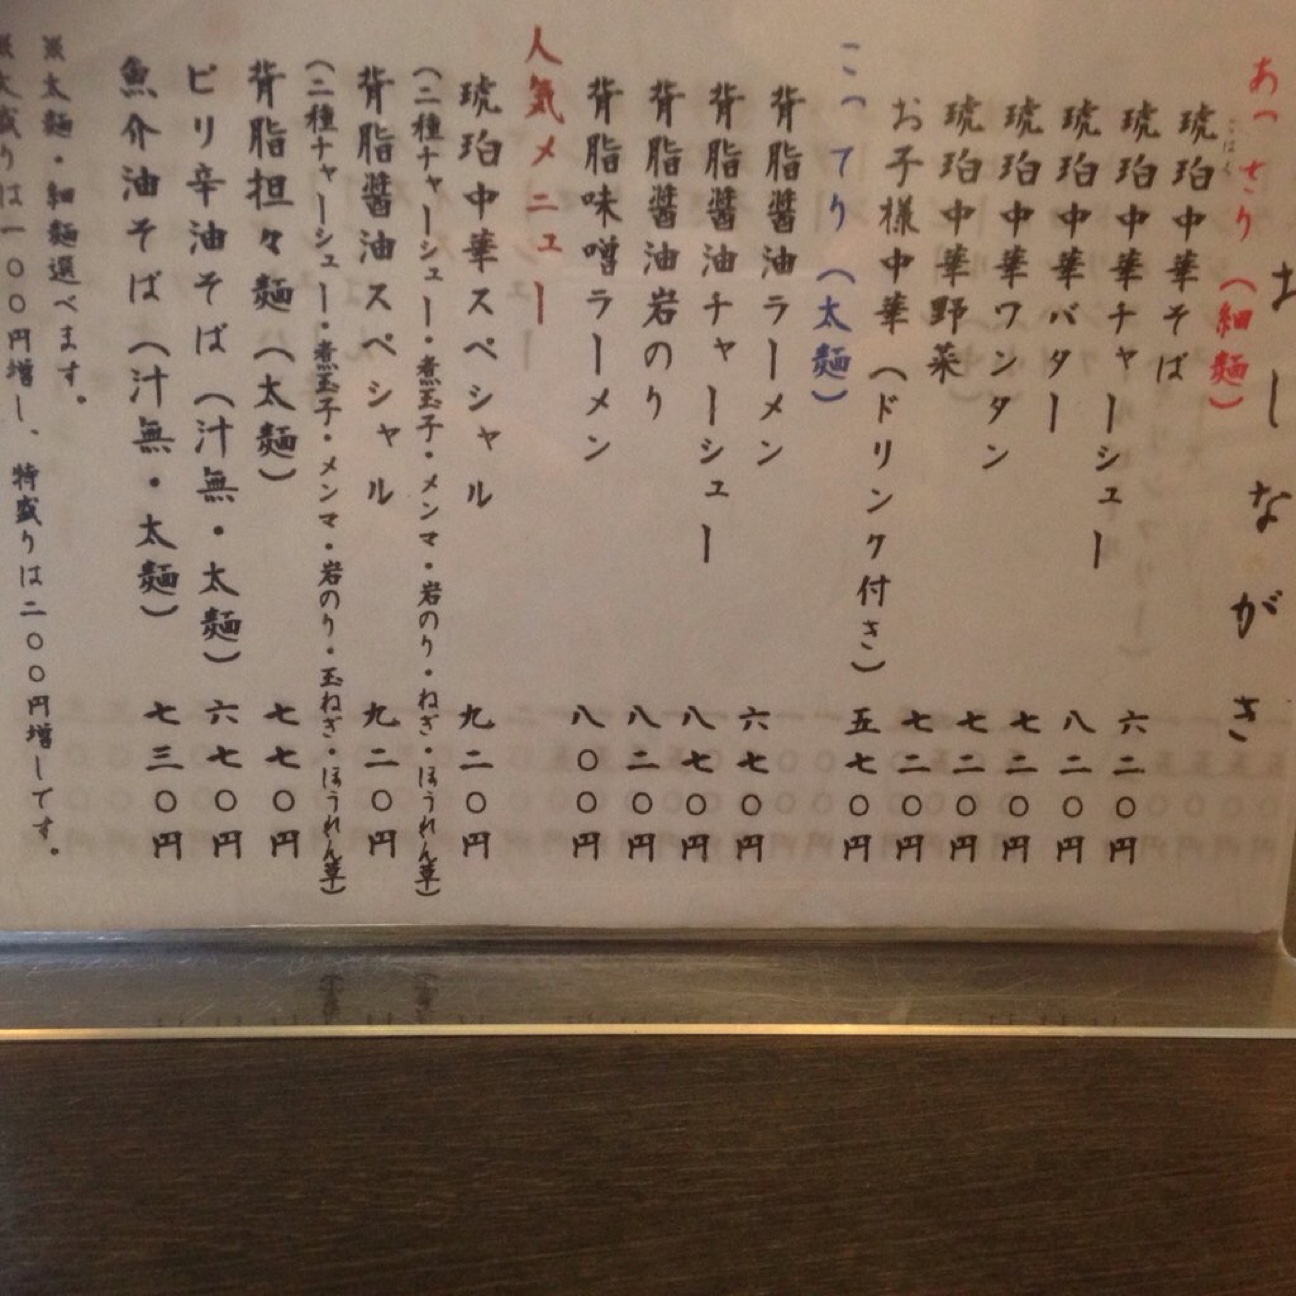 おしながき
あっさり（細麺）
琥珀中華そば 六二〇円
こはく
琥珀中華チャーシュー 八二〇円
琥珀中華バター 七二〇円
琥珀中華ワンタン 七二〇円
琥珀中華野菜 七二〇円
お子様中華（ドリンク付き） 五七〇円
こってり（太麺）
背脂醤油ラーメン 六七〇円
背脂醤油チャーシュー 八七〇円
背脂醤油岩のり 八二〇円
背脂味噌ラーメン 八〇〇円
人気メニュー
琥珀中華スペシャル 九二〇円
（二種チャーシュー・煮玉子・メンマ・岩のり・ねぎ・ほうれん草）
背脂醤油スペシャル 九二〇円
（二種チャーシュー・煮玉子・メンマ・岩のり・玉ねぎ・ほうれん草）
背脂担々麺（太麺） 七七〇円
ピリ辛油そば（汁無・太麺） 六七〇円
魚介油そば（汁無・太麺） 七三〇円
※太麺・細麺選べます。
※大盛りは一〇〇円増し、特盛りは二〇〇円増しです。